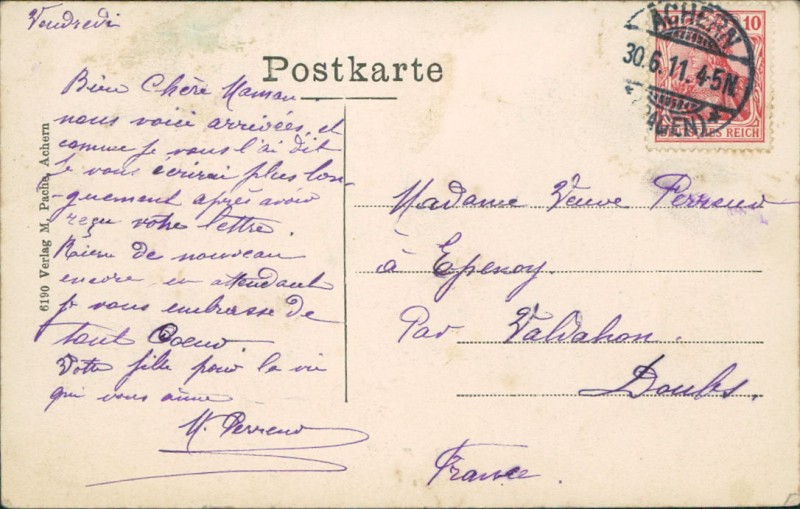 Vendredi
Postkarte
Bien Chère Maman
nous voici arrivées, et
comme je vous l'ai dit
je vous écrirai plus lon-
-guement après avoir
reçu votre lettre.
Rien de nouveau
encore en attendant
je vous embrasse de
tout Coeur
Votre fille pour la vie
qui vous aime
M. Perreno
6190 Verlag M. Pache, Achern
10
ACHERN
30.6.11.4-5N.
(BADEN)
DEUTSCHES REICH
Madame Veuve Perreno
à Epenoy.
Par Valdahon.
Doubs.
France.